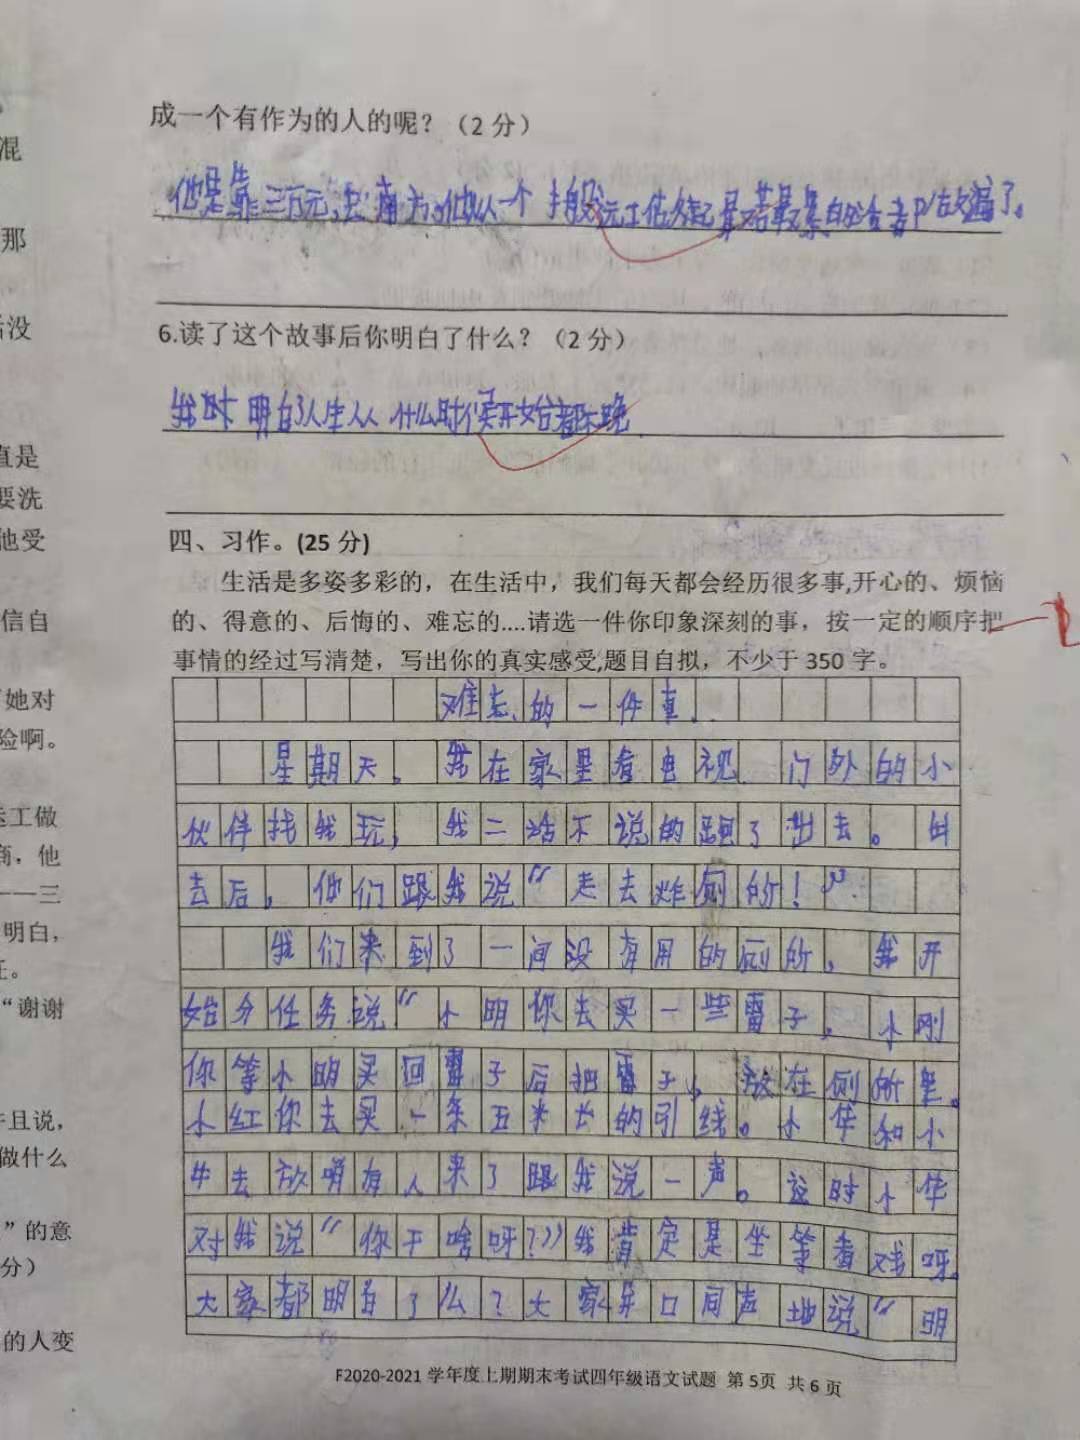 混
那
后没
直是
要洗
他受
信自
她对
险啊。
运工做
商，他
——三
明白，
“谢谢
并且说，
做什么
”的意
分）
的人变
成一个有作为的人的呢？（2 分）
他是靠三百元，去南方，他从一个搬运工
6.读了这个故事后你明白了什么？（2 分）
我 明白了人生 什么时候开始都不晚
四、习作。(25 分)
生活是多姿多彩的，在生活中，我们每天都会经历很多事,开心的、烦恼
的、得意的、后悔的、难忘的....请选一件你印象深刻的事，按一定的顺序把
事情的经过写清楚，写出你的真实感受,题目自拟，不少于 350 字。
难忘的一件事
星期天。我在家里看电视 门外的小
伙伴找我玩，我二话不说的跑了出去。出
去后，他们跟我说“走去炸厕所！”
我们来到了一间没有用的厕所，我开
始分任务说“小明你去买一些雷子，小刚
你等小明买回雷子后把雷子，放在厕所里。
小红你去买一条五米长的引线。小华和小
牛去放哨有人来了跟我说一声。这时小华
对我说“你干啥呀？”我肯定是坐等看戏呀。
大家都明白了么？大家异口同声地说“明
F2020-2021 学年度上期期末考试四年级语文试题 第 5页 共 6 页